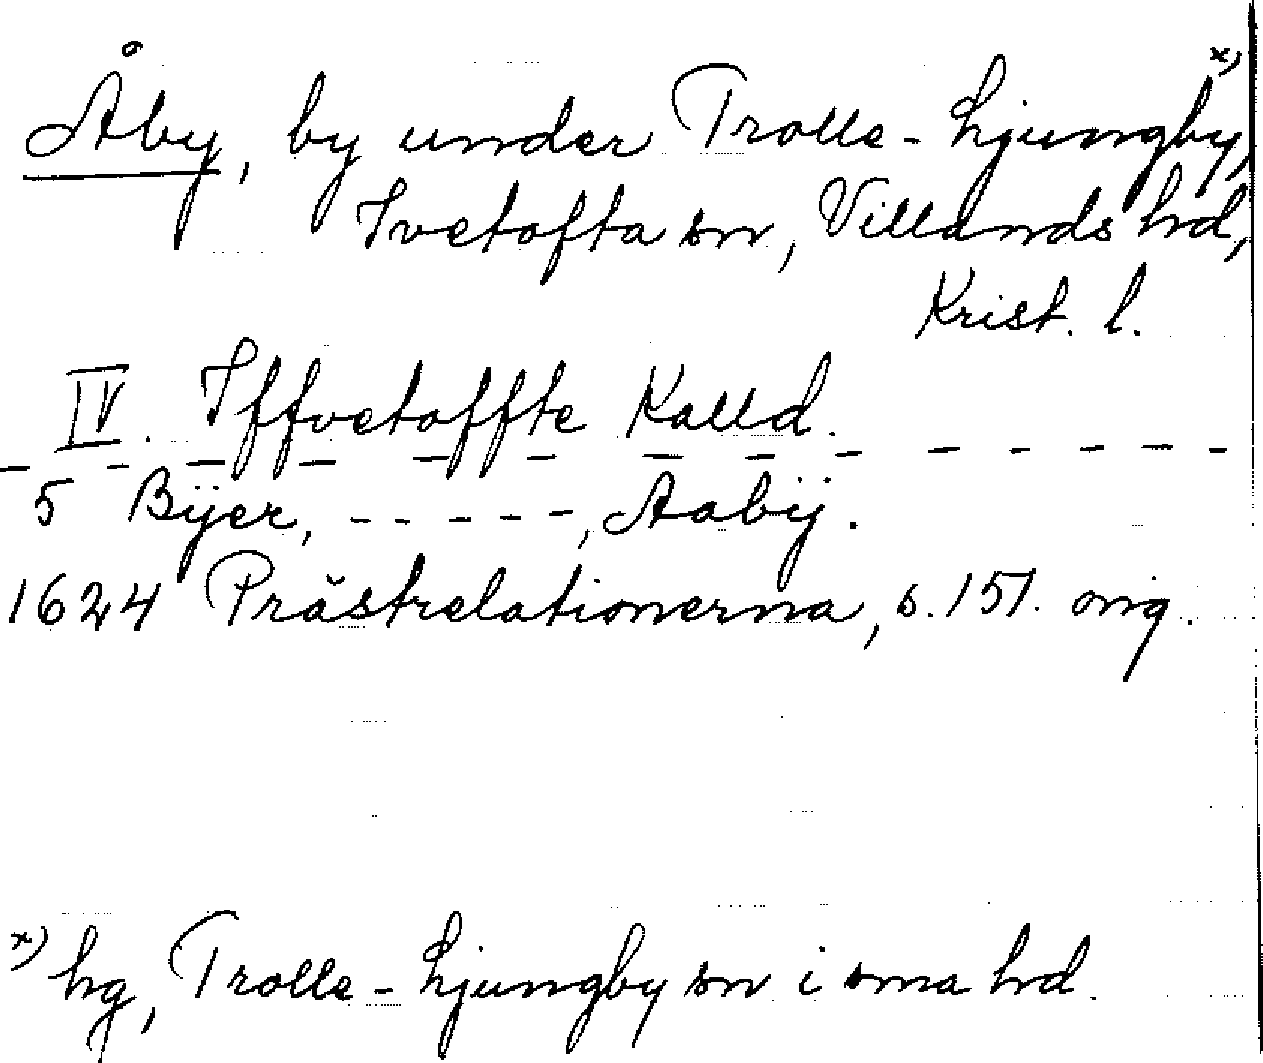 Åby, by under Trolle-Ljungby, x)
Ivetofta sn, Villands hrd,
Krist. l.
IV. Iffvetoffte Kalld.
- - - - - - - - - - - - - -
5 Bÿer, - - - - -, Aabÿ.
1624 Prästrelationerna, s. 151. orig.
x) hg, Trolle-Ljungby sn i sma hrd.